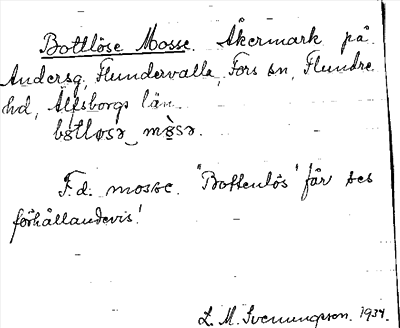 Bottlöse Mosse. Åkermark på
Andersg, Flundervalla, Fors sn, Flundre
hd, Älfsborgs län.
bòtløsə mòsə.
F.d. mosse. "Bottenlös" får ses
förhållandevis!
L. M. Svenungsson. 1934.